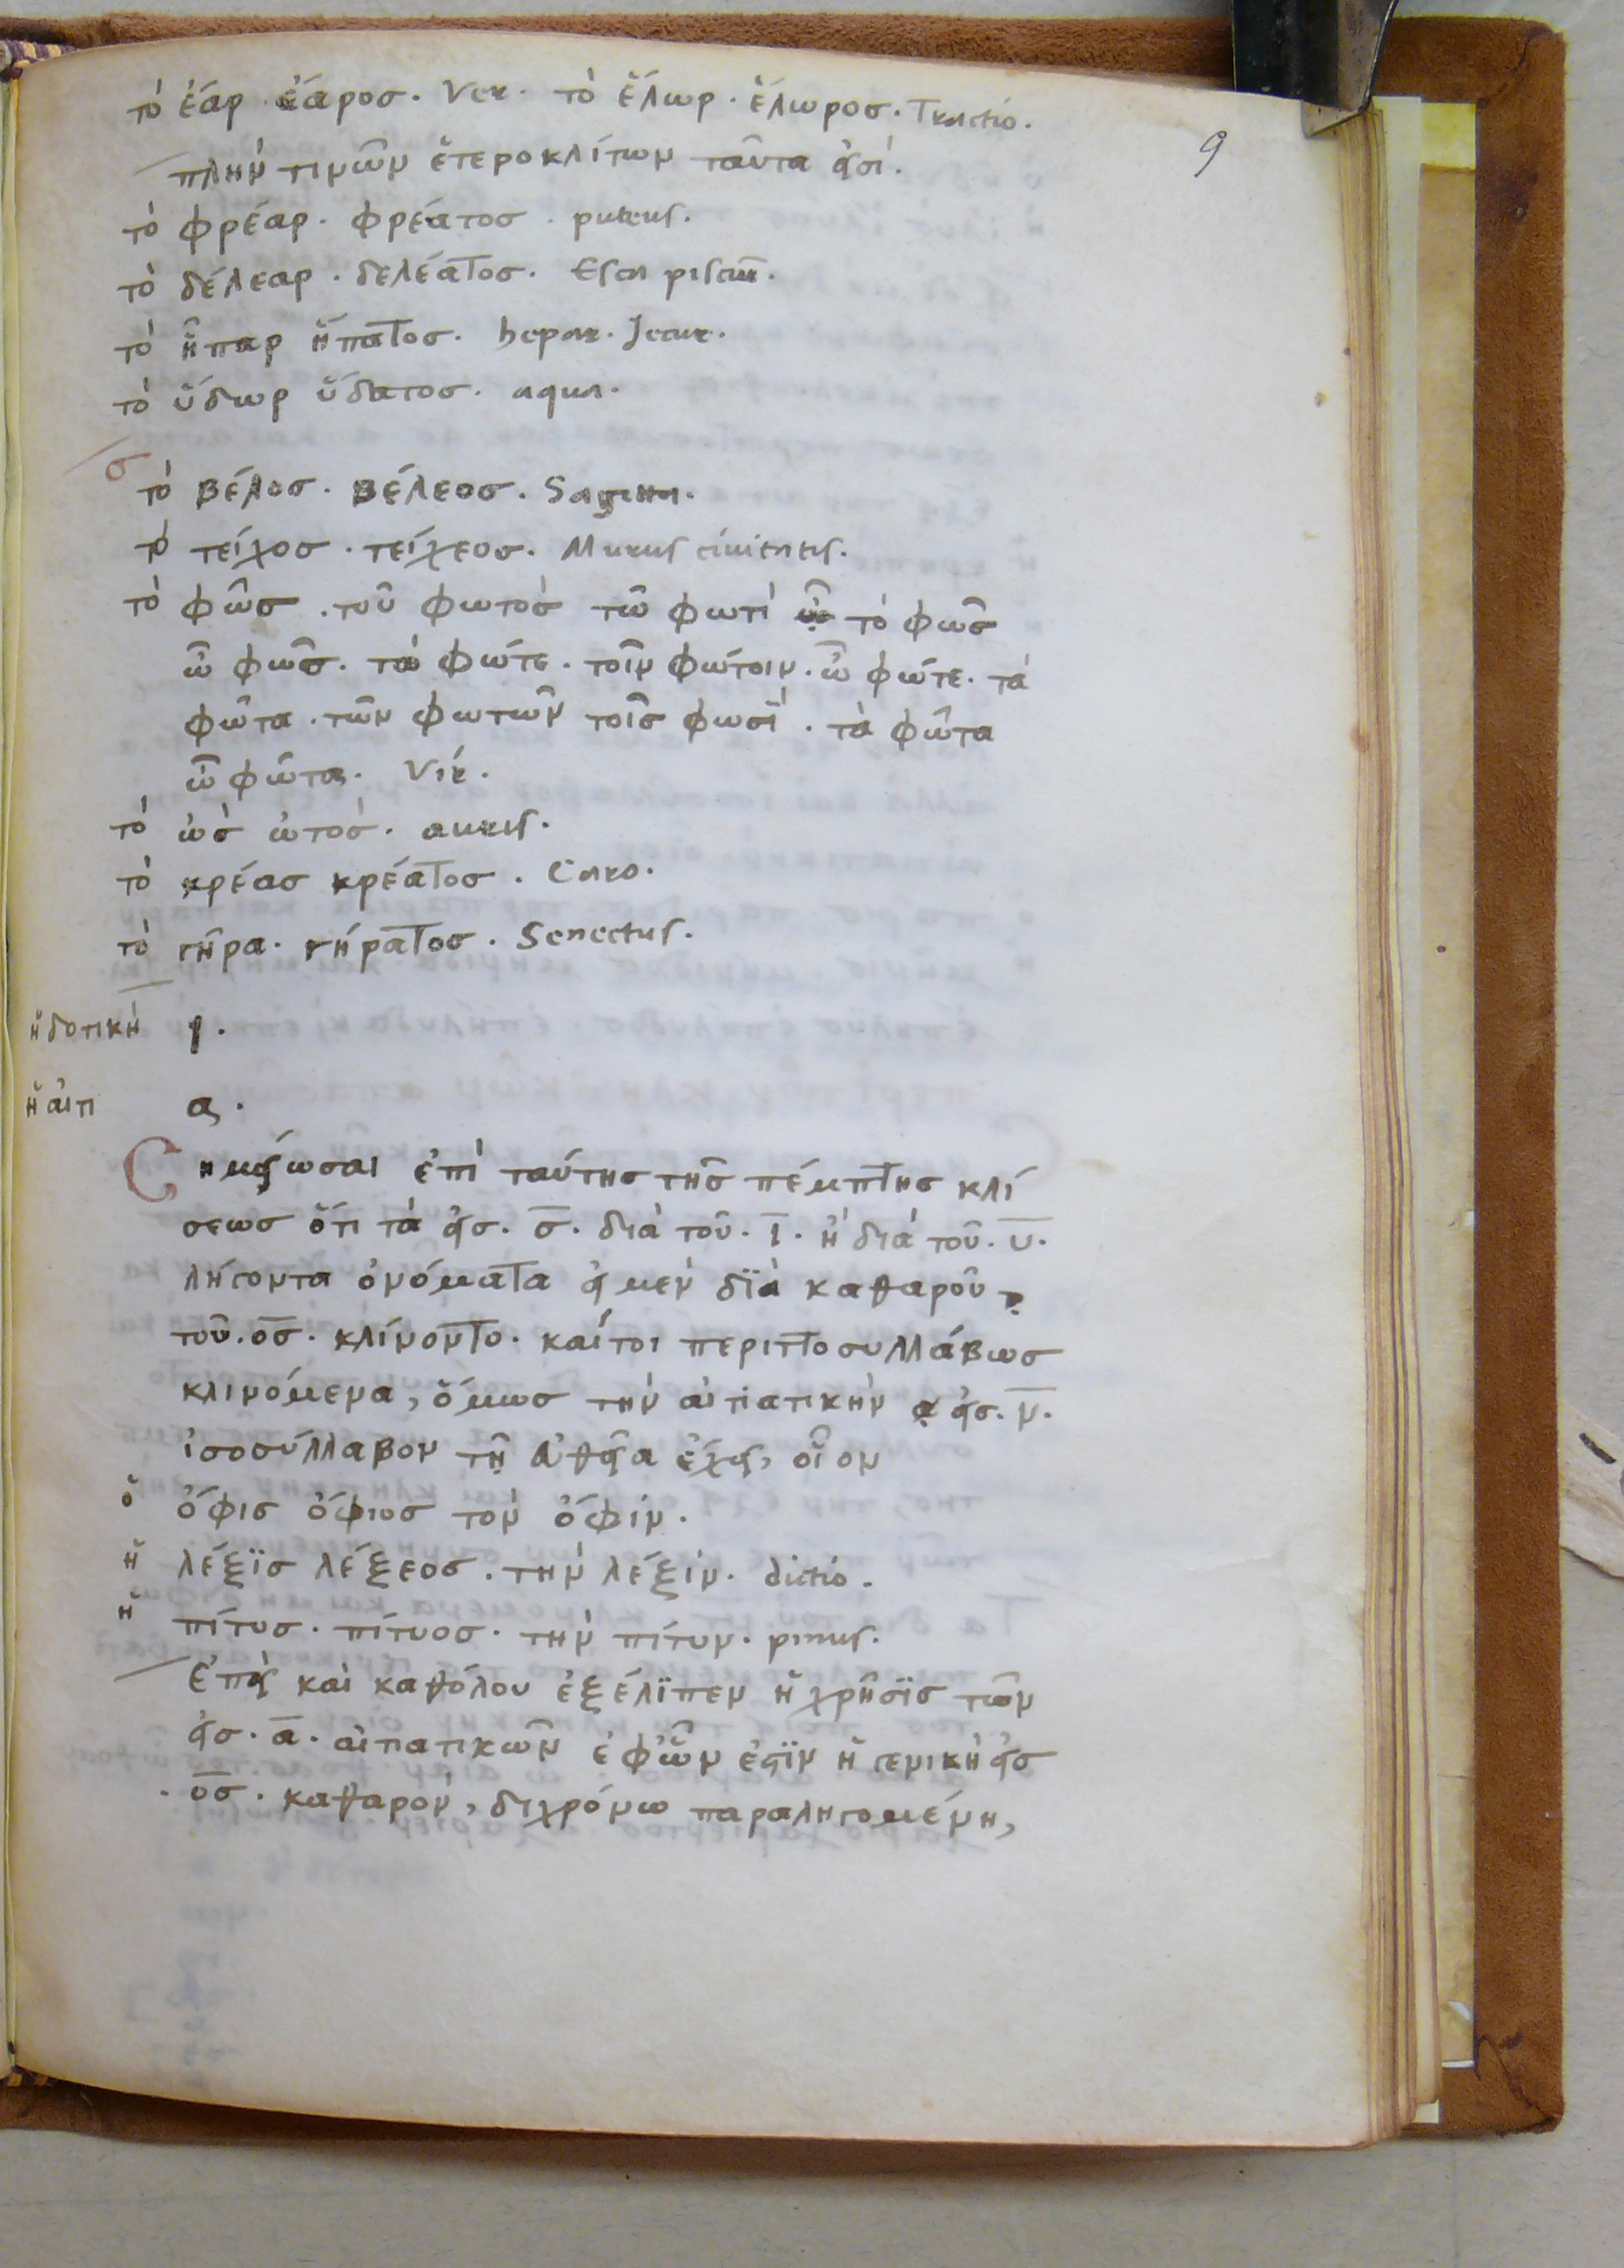 τὸ ἐάρ ἐάροσ. Ver. τὸ ἕλωρ. ἕλωροσ. Tractio.
9
πλὴν τινῶν ἑτεροκλίτων ταῦτα εἰσὶ.
τὸ φρέαρ. φρέατοσ. puteus.
τὸ δέλεαρ. δελέατοσ. Esca pisciū.
τὸ ἧπαρ ἥπατοσ. hepar. Jecur.
τὸ ὕδωρ ὕδατοσ. aqua.
σ
τὸ βέλοσ. βέλεοσ. Sagitta.
τὸ τείχοσ. τείχεοσ. Murus ciuitatis.
τὸ φῶσ. τοῦ φωτὸσ τῶ φωτὶ τὸ φῶσ
ὦ φῶσ. τὼ φώτε. τοῖν φώτοιν. ὦ φώτε. τὰ
φῶτα. τῶν φωτῶν τοῖσ φωσὶ. τὰ φῶτα
ὦ φῶτα. Vir.
τὸ ὠσ ὠτὸσ. auris.
τὸ κρέασ κρέατοσ. Caro.
τὸ γῆρα. γήρατοσ. Senectus.
ἡ δοτικὴ ι.
ἡ αἰτι α.
Σημείωσαι ἐπὶ ταύτησ τῆσ πέμπτησ κλί
σεωσ ὅτι τὰ εἰσ. σ̅. διὰ τοῦ. ι̅. ἢ διὰ τοῦ. υ̅.
λήγοντα ὀνόματα εἰ μὲν δϊὰ καθαροῦ
τοῦ. ο̅σ̅. κλίνοντο. καίτοι περιττοσυλλάβωσ
κλινόμενα, ὅμωσ τὴν αἰτιατικὴν εἰσ. ν̅.
ἰσοσύλλαβον τῆ εὐθεῖα ἔχει, οἷον
ὁ ὄφισ ὄφιοσ τὸν ὄφιν.
ἡ λέξϊσ λέξεοσ. τὴν λέξιν. dictio.
ἡ πίτυσ. πίτυοσ. τὴν πίτυν. pinus.
Ἐπεὶ καὶ καθόλου ἐξέλϊπεν ἡ χρῆσϊσ τῶν
εἰσ. α̅. αἰτιατικῶν ἐφὧν ἐστϊν ἡ γενικὴ εἰσ
. ο̅σ̅. καθαρὸν, διχρόνω παραληγομένη,